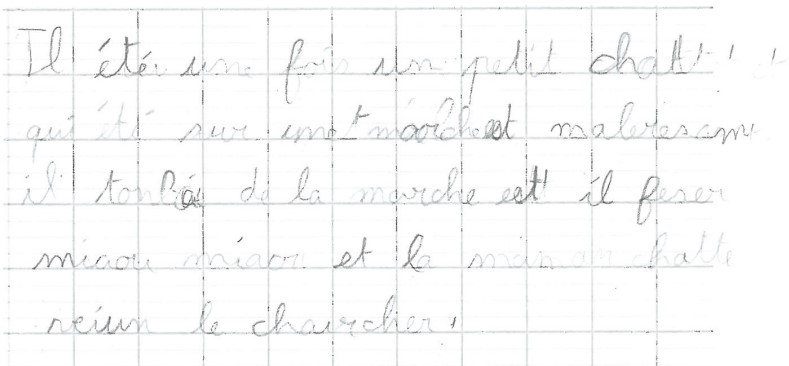 Il été une fois un petit chatt
qui éti sur une marche et maleresam
il tonba de la marche et il feser
miaou miaou et la maman chatte
reiun le chaircher.